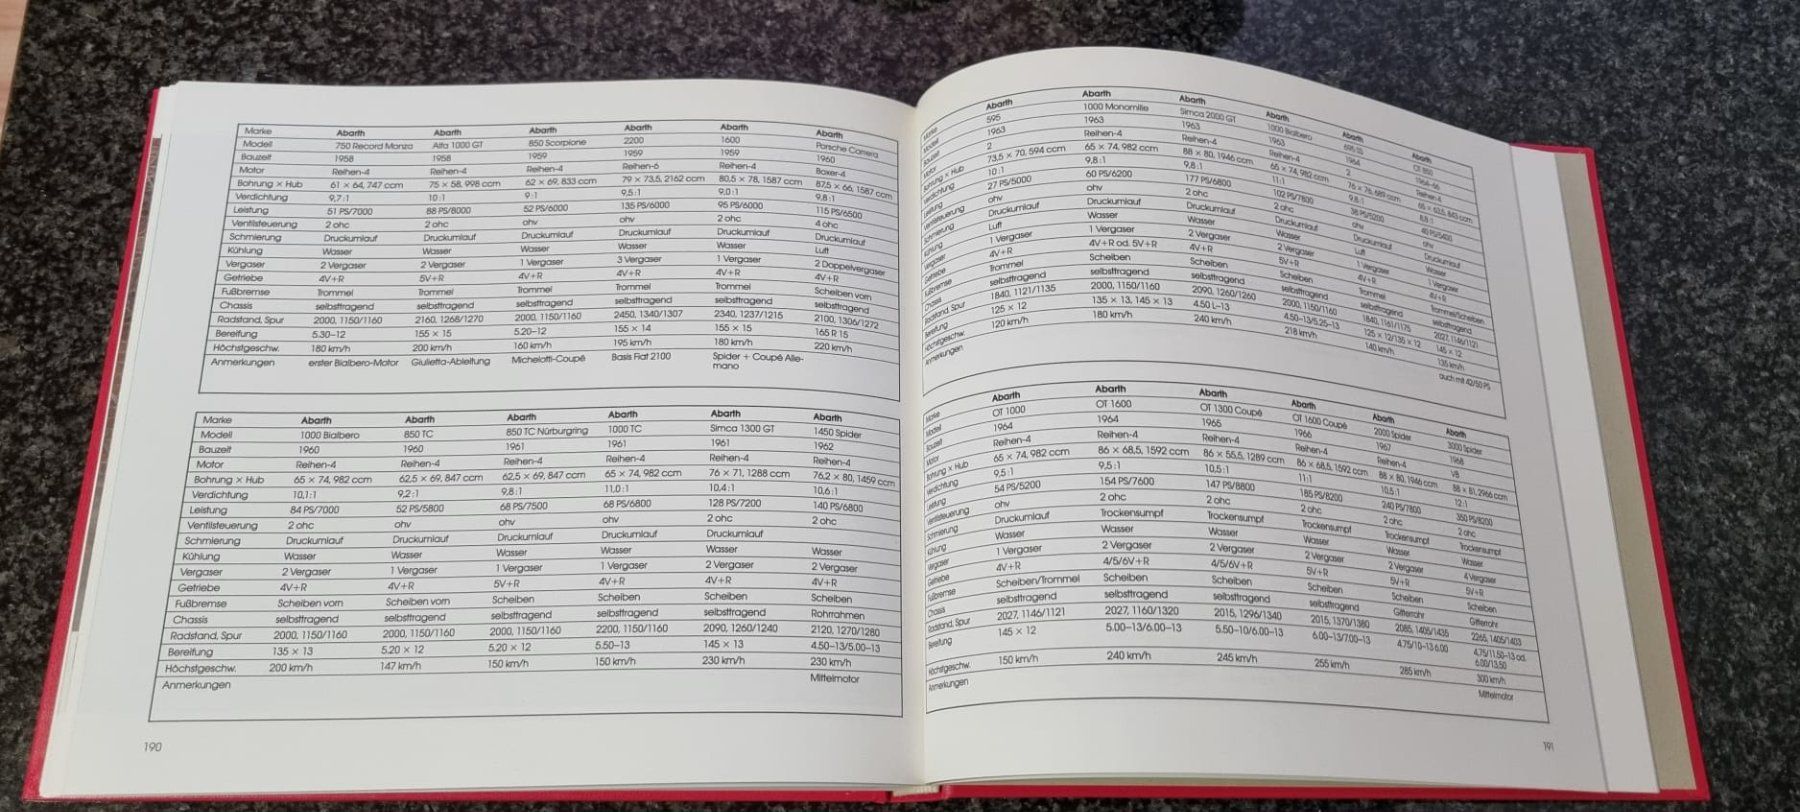 Marke Abarth Abarth Abarth Abarth Abarth Abarth
Modell 750 Record Monza Alfa 1000 GT 850 Scorpione 2200 1600 Porsche Carrera
Bauzeit 1958 1958 1959 1959 1959 1960
Motor Reihen-4 Reihen-4 Reihen-4 Reihen-6 Reihen-4 Boxer-4
Bohrung × Hub 61 × 64, 747 ccm 75 × 58, 998 ccm 62 × 69, 833 ccm 79 × 73,5, 2162 ccm 80,5 × 78, 1587 ccm 87,5 × 66, 1587 ccm
Verdichtung 9,7:1 10:1 9:1 9,5:1 9,0:1 9,8:1
Leistung 51 PS/7000 88 PS/8000 52 PS/6000 135 PS/6000 95 PS/6000 115 PS/6500
Ventilsteuerung 2 ohc 2 ohc ohv ohv 2 ohc 4 ohc
Schmierung Druckumlauf Druckumlauf Druckumlauf Druckumlauf Druckumlauf Druckumlauf
Kühlung Wasser Wasser Wasser Wasser Wasser Luft
Vergaser 2 Vergaser 2 Vergaser 1 Vergaser 3 Vergaser 1 Vergaser 2 Doppelvergaser
Getriebe 4V+R 5V+R 4V+R 4V+R 4V+R 4V+R
Fußbremse Trommel Trommel Trommel Trommel Trommel Scheiben vorn
Chassis selbsttragend selbsttragend selbsttragend selbsttragend selbsttragend selbsttragend
Radstand, Spur 2000, 1150/1160 2160, 1268/1270 2000, 1150/1160 2450, 1340/1307 2340, 1237/1215 2100, 1306/1272
Bereifung 5.30–12 155 × 15 5.20–12 155 × 14 155 × 15 165 R 15
Höchstgeschw. 180 km/h 200 km/h 160 km/h 195 km/h 180 km/h 220 km/h
Anmerkungen erster Bialbero-Motor Giulietta-Ableitung Michelotti-Coupé Basis Fiat 2100 Spider + Coupé Alle-
mano
Marke Abarth Abarth Abarth Abarth Abarth Abarth
Modell 1000 Bialbero 850 TC 850 TC Nürburgring 1000 TC Simca 1300 GT 1450 Spider
Bauzeit 1960 1960 1961 1961 1961 1962
Motor Reihen-4 Reihen-4 Reihen-4 Reihen-4 Reihen-4 Reihen-4
Bohrung × Hub 65 × 74, 982 ccm 62,5 × 69, 847 ccm 62,5 × 69, 847 ccm 65 × 74, 982 ccm 76 × 71, 1288 ccm 76,2 × 80, 1459 ccm
Verdichtung 10,1:1 9,2:1 9,8:1 11,0:1 10,4:1 10,6:1
Leistung 84 PS/7000 52 PS/5800 68 PS/7500 68 PS/6800 128 PS/7200 140 PS/6800
Ventilsteuerung 2 ohc ohv ohv ohv 2 ohc 2 ohc
Schmierung Druckumlauf Druckumlauf Druckumlauf Druckumlauf Druckumlauf
Kühlung Wasser Wasser Wasser Wasser Wasser Wasser
Vergaser 2 Vergaser 1 Vergaser 1 Vergaser 1 Vergaser 2 Vergaser 2 Vergaser
Getriebe 4V+R 4V+R 5V+R 4V+R 4V+R 4V+R
Fußbremse Scheiben vorn Scheiben vorn Scheiben Scheiben Scheiben Scheiben
Chassis selbsttragend selbsttragend selbsttragend selbsttragend selbsttragend Rohrrahmen
Radstand, Spur 2000, 1150/1160 2000, 1150/1160 2000, 1150/1160 2200, 1150/1160 2090, 1260/1240 2120, 1270/1280
Bereifung 135 × 13 5.20 × 12 5.20 × 12 5.50–13 145 × 13 4.50–13/5.00–13
Höchstgeschw. 200 km/h 147 km/h 150 km/h 150 km/h 230 km/h 230 km/h
Anmerkungen Mittelmotor
190
Marke Abarth Abarth Abarth Abarth Abarth Abarth
Modell 595 1000 Monomille Simca 2000 GT 1000 Bialbero 695 SS OT 850
Bauzeit 1963 1963 1963 1963 1964 1964–66
Motor 2 Reihen-4 Reihen-4 Reihen-4 2 Reihen-4
Bohrung × Hub 73,5 × 70, 594 ccm 65 × 74, 982 ccm 88 × 80, 1946 ccm 65 × 74, 982 ccm 76 × 76, 689 ccm 65 × 63,5, 843 ccm
Verdichtung 10:1 9,8:1 9,8:1 11:1 9,8:1 8,8:1
Leistung 27 PS/5000 60 PS/6200 177 PS/6800 102 PS/7800 38 PS/5200 40 PS/5400
Ventilsteuerung ohv ohv 2 ohc 2 ohc ohv ohv
Schmierung Druckumlauf Druckumlauf Druckumlauf Druckumlauf Druckumlauf Druckumlauf
Kühlung Luft Wasser Wasser Wasser Luft Wasser
Vergaser 1 Vergaser 1 Vergaser 2 Vergaser 2 Vergaser 1 Vergaser 1 Vergaser
Getriebe 4V+R 4V+R od. 5V+R 4V+R 5V+R 4V+R 4V+R
Fußbremse Trommel Scheiben Scheiben Scheiben Trommel Trommel/Scheiben
Chassis selbsttragend selbsttragend selbsttragend selbsttragend selbsttragend selbsttragend
Radstand, Spur 1840, 1121/1135 2000, 1150/1160 2090, 1260/1260 2000, 1150/1160 1840, 1161/1175 2027, 1146/1121
Bereifung 125 × 12 135 × 13, 145 × 13 4.50 L–13 4.50–13/5.25–13 125 × 12/135 × 12 145 × 12
Höchstgeschw. 120 km/h 180 km/h 240 km/h 218 km/h 140 km/h 135 km/h
Anmerkungen auch mit 42/50 PS
Marke Abarth Abarth Abarth Abarth Abarth Abarth
Modell OT 1000 OT 1600 OT 1300 Coupé OT 1600 Coupé 2000 Spider 3000 Spider
Bauzeit 1964 1964 1965 1966 1967 1968
Motor Reihen-4 Reihen-4 Reihen-4 Reihen-4 Reihen-4 V8
Bohrung × Hub 65 × 74, 982 ccm 86 × 68,5, 1592 ccm 86 × 55,5, 1289 ccm 86 × 68,5, 1592 ccm 88 × 80, 1946 ccm 88 × 81, 2966 ccm
Verdichtung 9,5:1 9,5:1 10,5:1 11:1 10,5:1 12:1
Leistung 54 PS/5200 154 PS/7600 147 PS/8800 185 PS/8200 240 PS/7800 350 PS/8200
Ventilsteuerung ohv 2 ohc 2 ohc 2 ohc 2 ohc 2 ohc
Schmierung Druckumlauf Trockensumpf Trockensumpf Trockensumpf Trockensumpf Trockensumpf
Kühlung Wasser Wasser Wasser Wasser Wasser Wasser
Vergaser 1 Vergaser 2 Vergaser 2 Vergaser 2 Vergaser 2 Vergaser 4 Vergaser
Getriebe 4V+R 4/5/6V+R 4/5/6V+R 5V+R 5V+R 5V+R
Fußbremse Scheiben/Trommel Scheiben Scheiben Scheiben Scheiben Scheiben
Chassis selbsttragend selbsttragend selbsttragend selbsttragend Gitterrohr Gitterrohr
Radstand, Spur 2027, 1146/1121 2027, 1160/1320 2015, 1296/1340 2015, 1370/1380 2085, 1405/1435 2265, 1405/1403
Bereifung 145 × 12 5.00–13/6.00–13 5.50–10/6.00–13 6.00–13/7.00–13 4.75/10–13 6.00 4.75/11.50–13 od.
6.00/13.50
Höchstgeschw. 150 km/h 240 km/h 245 km/h 255 km/h 285 km/h 300 km/h
Anmerkungen Mittelmotor
191